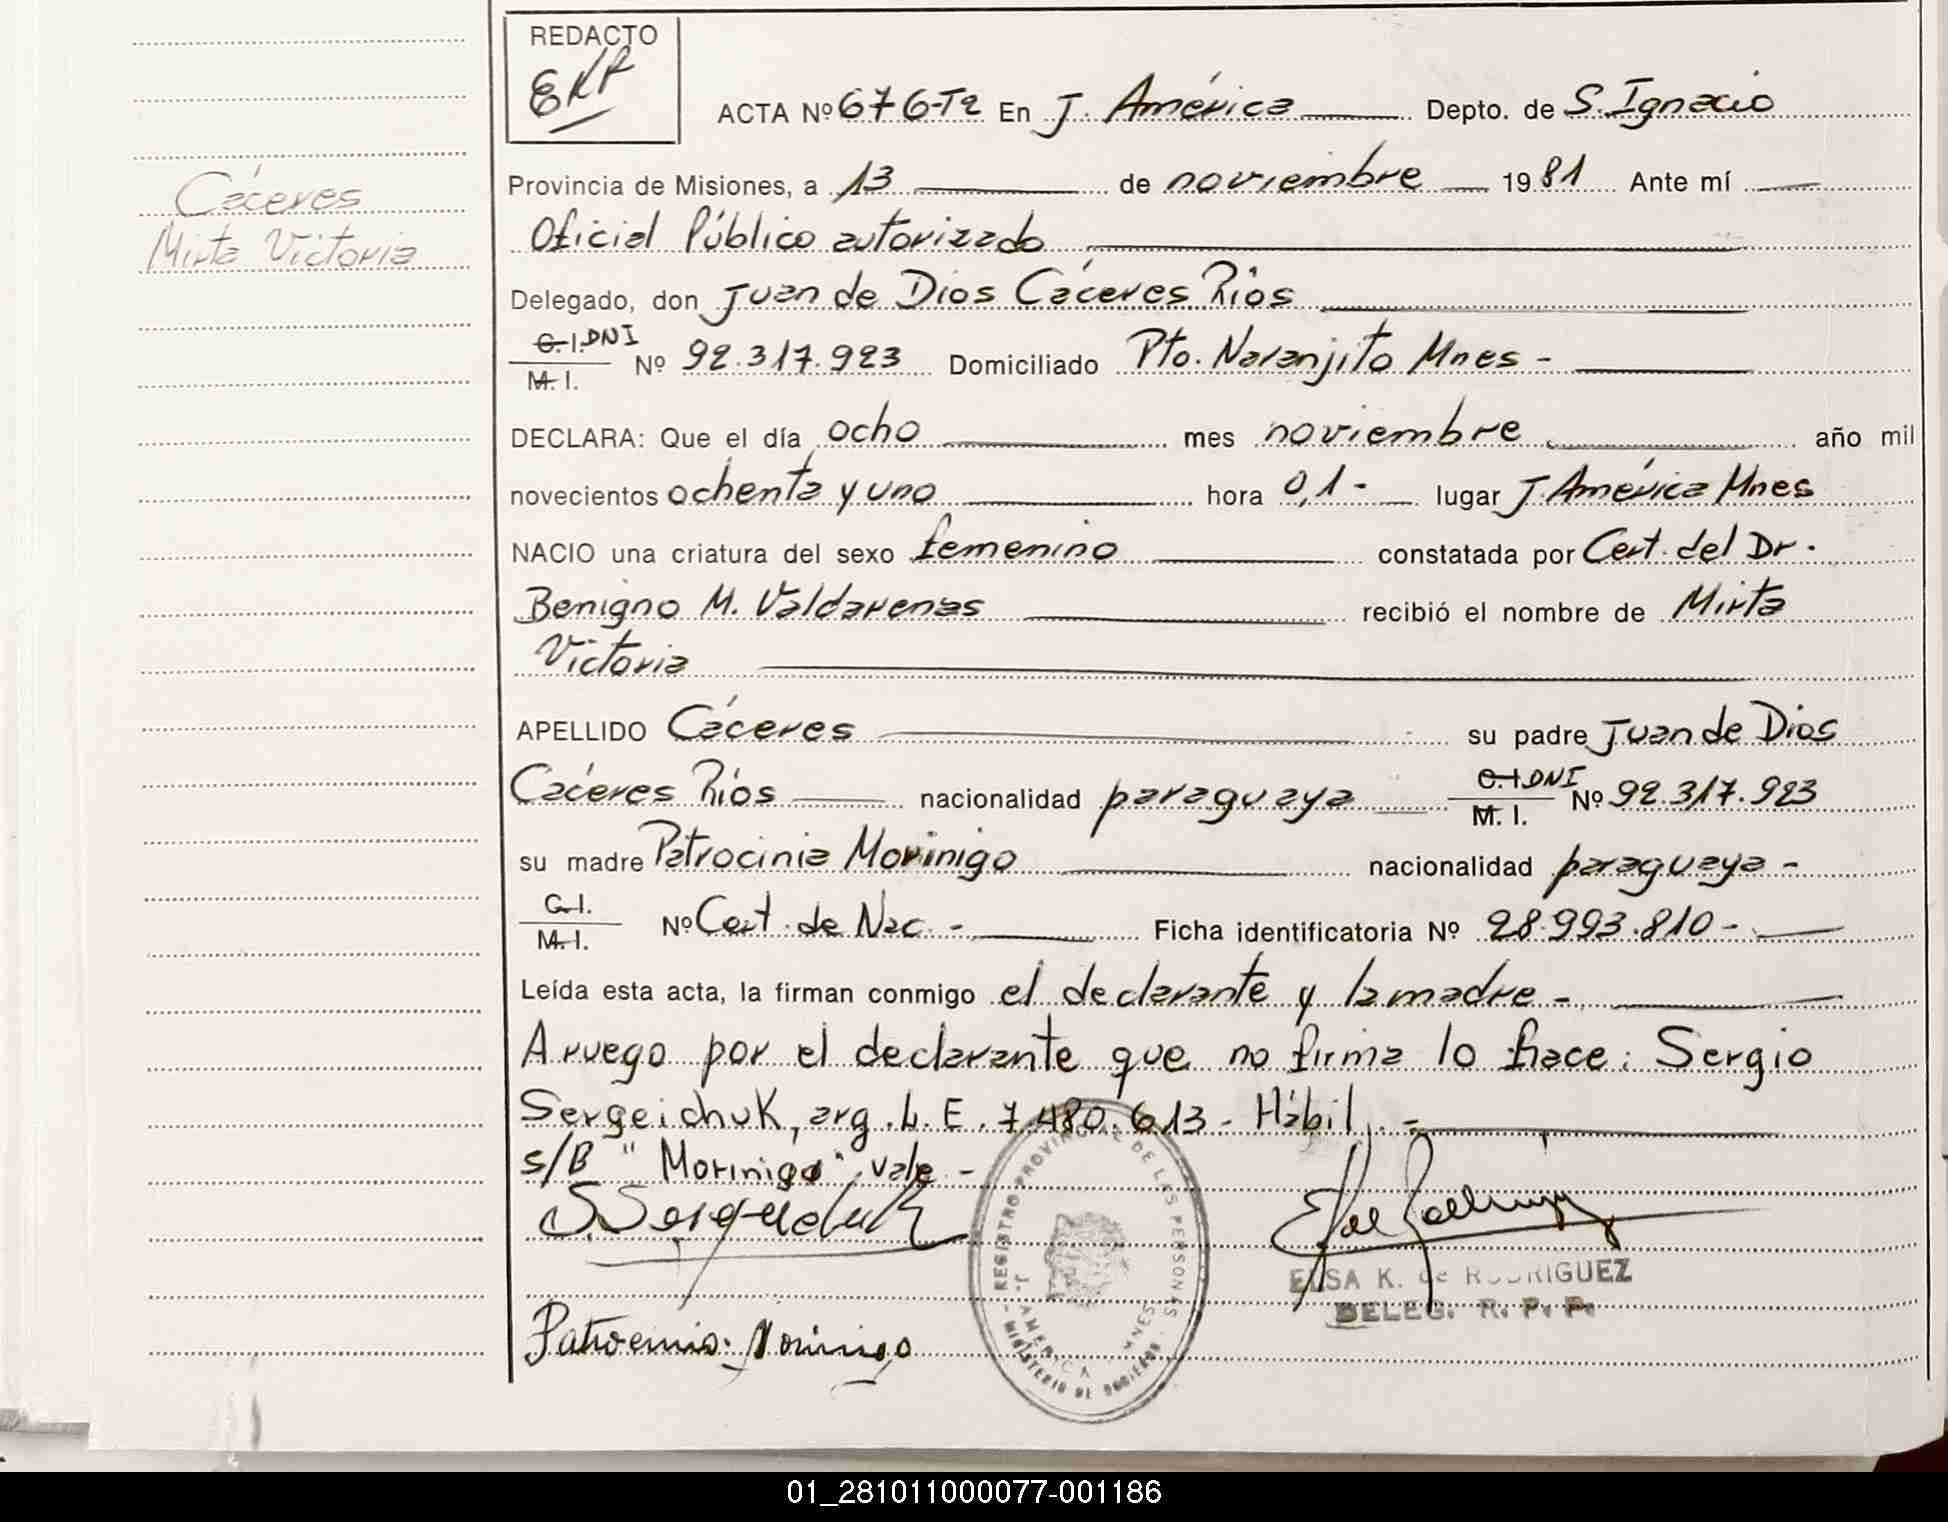 REDACTO
EKR
ACTA Nº 676-Tº En J. América Depto. de S. Ignacio
Provincia de Misiones, a 13 de noviembre 1981 Ante mí
Cáceres
Oficial Público autorizado
Mirta Victoria
Delegado, don Juan de Dios Cáceres Ríos
C. I. DNI
M. I.
Nº 92.317.923 Domiciliado Pto. Naranjito Mnes -
DECLARA: Que el día ocho mes noviembre año mil
novecientos ochenta y uno hora 0,1- lugar J. América Mnes
NACIO una criatura del sexo femenino constatada por Cert. del Dr.
Benigno M. Valdarenas recibió el nombre de Mirta
Victoria
APELLIDO Cáceres su padre Juan de Dios
Cáceres Ríos nacionalidad paraguaya C. I. DNI Nº 92.317.923
M. I.
su madre Patrocinia Morinigo nacionalidad paraguaya -
C. I.
M. I.
Nº Cert. de Nac. - Ficha identificatoria Nº 28.993.810 -
Leída esta acta, la firman conmigo el declarante y la madre -
A ruego por el declarante que no firma lo hace: Sergio
Sergeichuk, arg. L. E. 7.480.613 - Hábil. -
s/B "Morinigo" vale -
S. Sergeichuk
ELSA K. de RODRIGUEZ
DELEG. R. P. P.
REGISTRO PROVINCIAL DE LAS PERSONAS
J. AMERICA - MNES
MINISTERIO DE GOBIERNO
Patrocinia Morinigo
01_281011000077-001186